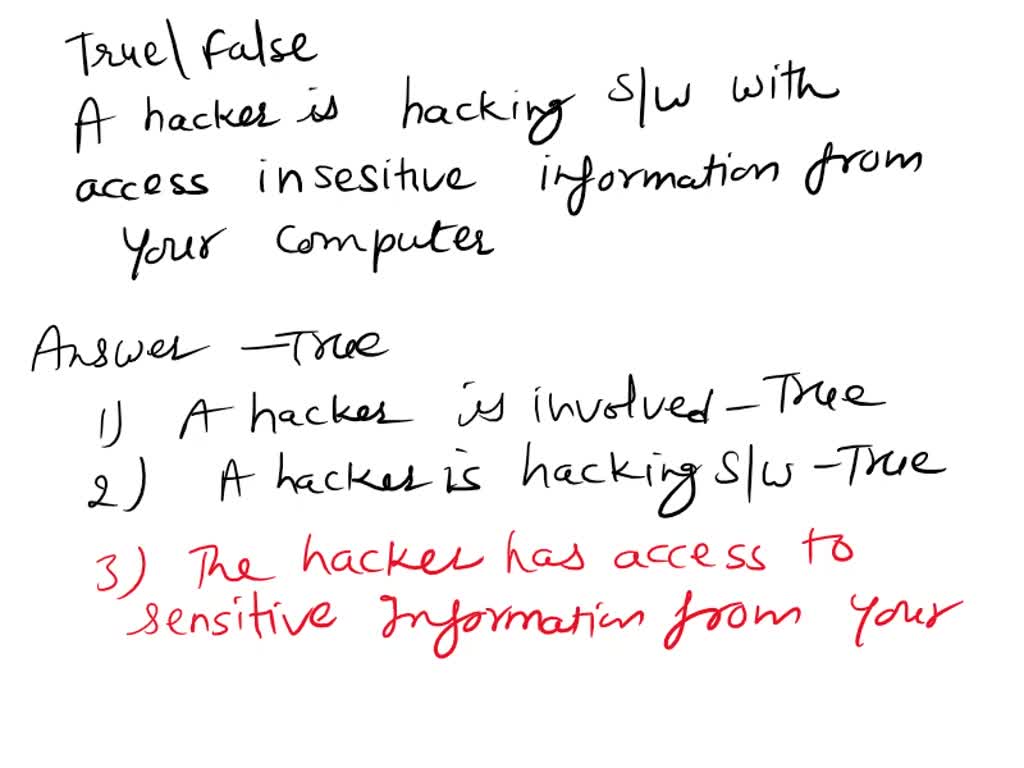 True\False
A hacker is hacking S/W with
access insesitive information from
your computer
Answer - True
1) A hacker is involved - True
2) A hacker is hacking S/W - True
3) The hacker has access to
sensitive Information from your